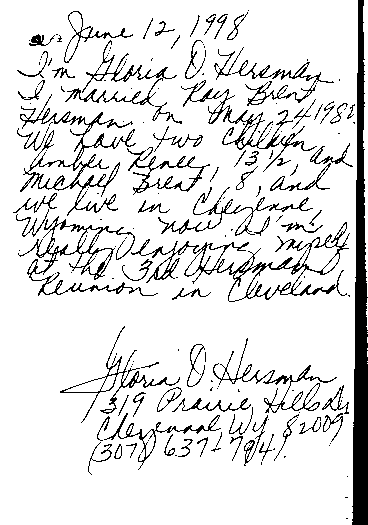 June 12, 1998
I'm Gloria D. Hersman.
I married Ray Brent
Hersman on May 24 198
We have two children,
Amber Renee, 13½, and
Michael Brent, 8, and
we live in Cheyenne
Wyoming now. I'm
Really enjoying myself
at the 3rd Hersman
Reunion in Cleveland.
Gloria D. Hersman
319 Prairie Hills Dr
Cheyenne, Wy 82009
(307) 637-7941.